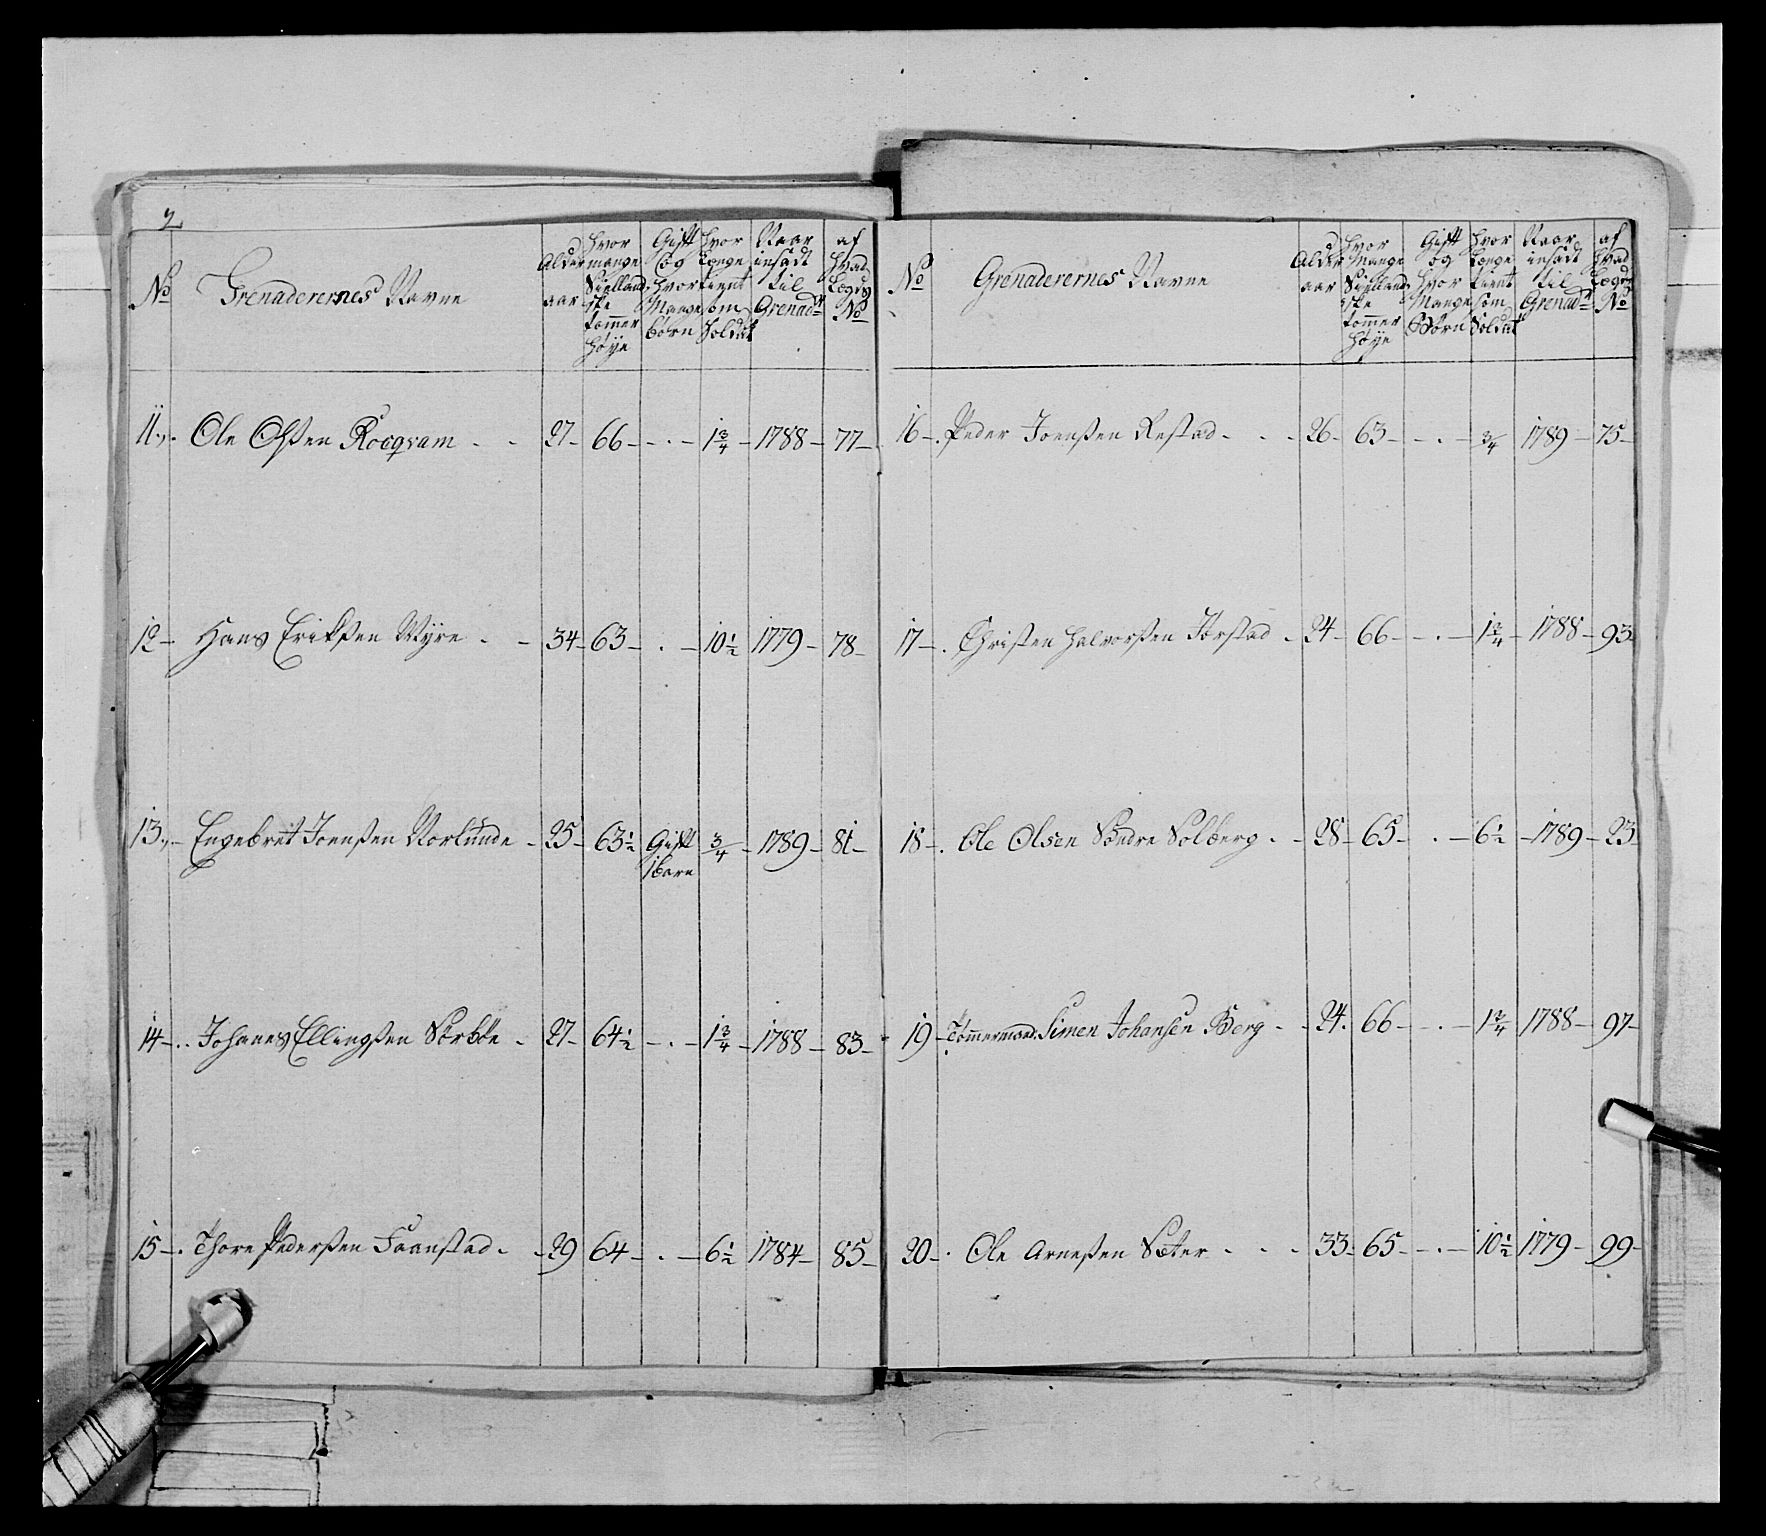 2
No Grenaderernes Navne Alder aar hvor mange Siellandske tommer høÿe Gift og hvor Mange børn hvor længe tient som Soldat Naar indsadt til Grenadr af hvad Lægds No
11. Ole Olsen Rocqvam - - 27 - 66 - . - 1 3/4 - 1788 - 77 -
12 - Hans Eriksen Myre . - 34 - 63 - . - 10 1/2 1779 - 78 -
13. - Engebret Joensen Norlunde - 25 - 63 1/2 Gift 1 barn 3/4 - 1789 - 81 -
14 - . Johanes Ellingsen Sørbøe - 27 - 64 1/2 - . - 1 3/4 - 1788 - 83 -
15 - . Thore Pedersen Faanstad - - 29 64 - . - 6 1/2 1784 - 85 -
No Grenaderernes Navne Alder aar hvor Mange Siellandske tommer høÿe Gift og hvor Mange Børn hvor længe tient som Soldat Naar indsadt til Grenadr af hvad Lægds No
16 - . Peder Joensen Restad - - - 26 - 63 - - . - 3/4 1789 - 75 -
17 - . Christen Halvorsen Jorstad - 24 - 66 - - . - 1 3/4 - 1788 - 93 -
18 - . Ole Olsen Søndre Solberg . - 28 - 65 - . - 6 1/2 - 1789 - 23 -
19 - Tømmermand. Simen Johansen Berg - - 24. 66 - - . - 1 3/4 1788 - 97 -
20 - . Ole Arnesen Sæter - - - 33 - 65 - - . - 10 1/2 1779 - 99 -